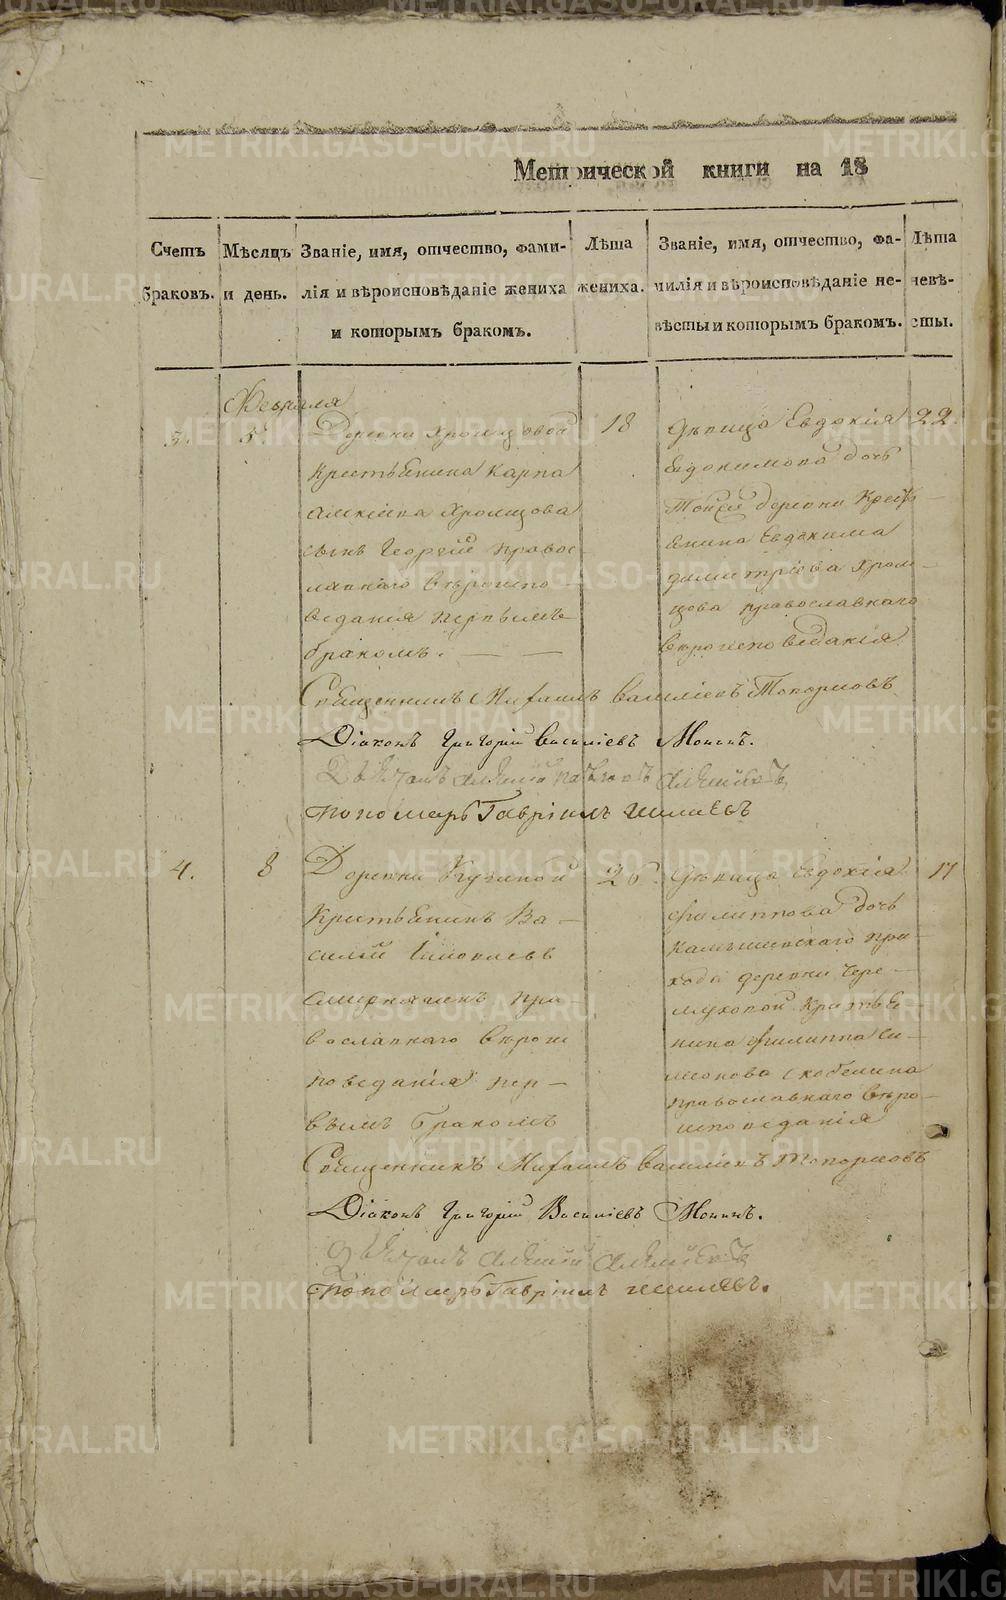 Метрической книги на 18
Счетъ браковъ.
Мѣсяцъ и день.
Званіе, имя, отчество, фами-
лія и вѣроисповѣданіе жениха
и которымъ бракомъ.
Лѣта жениха.
Званіе, имя, отчество, фа-
милія и вѣроисповѣданіе не-
вѣсты и которымъ бракомъ.
Лѣта невѣ-
сты.
Февраля
3.
5.
Деревни Хромцовой
крестьянина Карпа
Хромцова
сынъ Георгій правос-
лавнаго вѣроиспо-
веданія первымъ
бракомъ.
18
дѣвица Евдокія
Евдокимова дочь
Тойже деревни Крест-
янина Евдокима
димитріева Хром-
цова православнаго
вѣроисповеданія
22.
Священникъ Михаилъ Василіевъ Топорковъ
Діаконъ Григорій Василіевъ Монинъ.
Пономарь Гавріилъ
4.
8
Деревни
Крестьянинъ Ва-
силій
пра-
вославнаго вѣроис
поведанія пер-
вымъ бракомъ
26.
дѣвица Евдокія
филиппова дочь
Камышевскаго при-
хода деревни Чере-
муховой Крестья
нина филиппа Си-
меонова Скобелина
православнаго вѣро-
исповеданія
17
Священникъ Михаилъ Василіевъ Топорковъ
Діаконъ Григорій Василіевъ Монинъ.
Пономарь Гавріилъ
METRIKI.GASO-URAL.RU